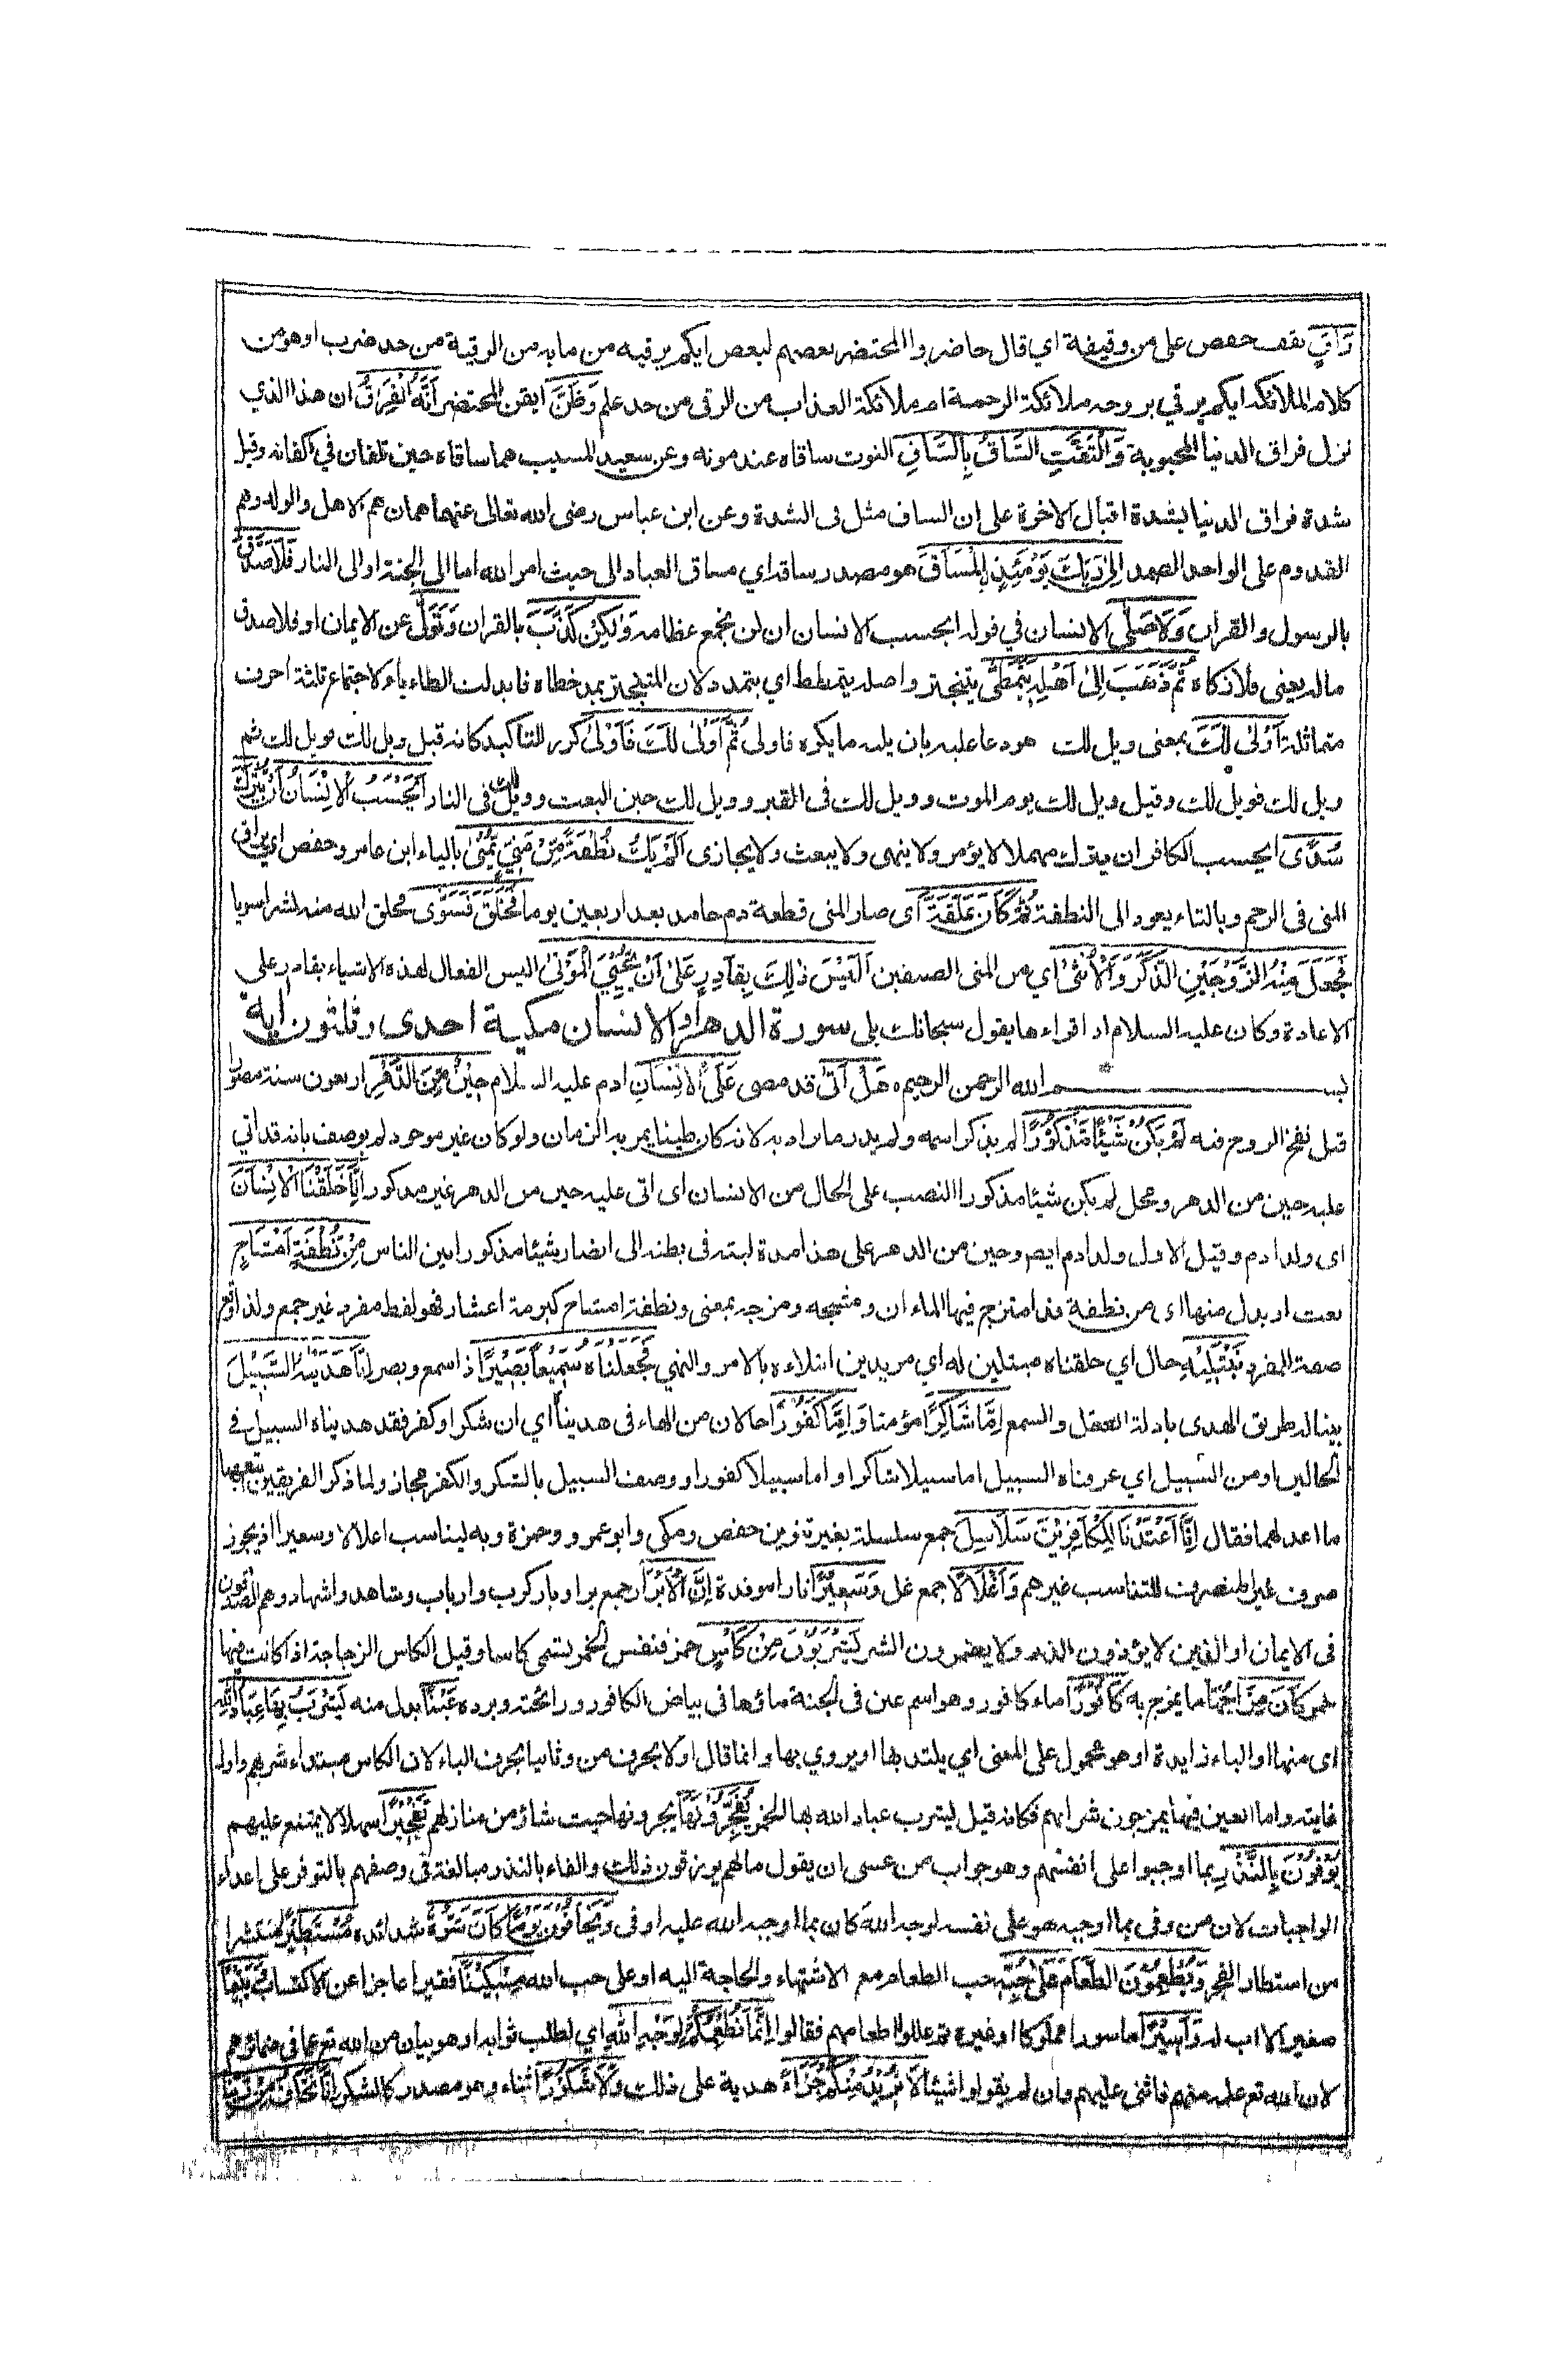 رَّاقٍ يقف حفص على من وقيفة اي قال حاضروا المحتضر بعضهم لبعض ايكم يرقيه من ما به من الرقية من حد ضرب او هو من
كلام الملائكة ايكم يرقي بروحه ملائكة الرحمة ام ملائكة العذاب من الرقى من حد علم وَظَنَّ ايقن المحتضر اَنَّهُ الْفِرَاقُ ان هذا الذي
نزل فراق الدنيا المحبوبة وَالْتَفَّتِ السَّاقُ بِالسَّاقِ التوت ساقاه عند موته وعن سعيد المسيب هما ساقاه حين تلفان في اكفانه وقيل
شدة فراق الدنيا بشدة اقبال الاخرة على ان الساق مثل فى الشدة وعن ابن عباس رضى الله تعالى عنهما همان هم الاهل والولد وهم
القدوم على الواحد الصمد اِلٰى رَبِّكَ يَوْمَئِذٍ اِلْمَسَاقُ هو مصدر ساقه اي مساق العباد الى حيث امر الله اما الى الجنة او الى النار فَلَا صَدَّقَ
بالرسول والقران وَلَا صَلّٰى الانسان في قوله ايحسب الانسان ان لن نجمع عظامه وَلٰكِنْ كَذَّبَ بالقران وَتَوَلّٰى عن الايمان او فلا صدق
ماله يعنى فلا زكاه ثُمَّ ذَهَبَ اِلٰى اَهْلِهٖ يَتَمَطّٰى يتبختر واصله يتمطط اي يتمدد لان المتبختر يمد خطاه فابدلت الطاء ياء لاجتماع ثلثة احرف
متماثلة اَوْلٰى لَكَ بمعنى ويل لك هو دعا عليه بان يليه ما يكره فاولى ثُمَّ اَوْلٰى لَكَ فَاَوْلٰى كرر للتاكيد كانه قيل ويل لك فويل لك ثم
ويل لك فويل لك وقيل ويل لك يوم الموت وويل لك فى القبر وويل لك حين البعث وويل لك فى النار اَيَحْسَبُ الْاِنْسَانُ اَنْ يُّتْرَكَ
سُدًى ايحسب الكافر ان يترك مهملا لا يؤمر ولا ينهى ولا يبعث ولا يجازى اَلَمْ يَكُ نُطْفَةً مِّنْ مَّنِيٍّ يُّمْنٰى بالياء ابن عامر وحفص اي يراق
المنى فى الرحم وبالتاء يعود الى النطفة ثُمَّ كَانَ عَلَقَةً اى صار المنى قطعة دم جامد بعد اربعين يوما فَخَلَقَ فَسَوّٰى فخلق الله منه بشرا سويا
فَجَعَلَ مِنْهُ الزَّوْجَيْنِ الذَّكَرَ وَالْاُنْثٰى اي من المنى الصنفين اَلَيْسَ ذٰلِكَ بِقَادِرٍ عَلٰى اَنْ يُّحْيِيَ الْمَوْتٰى اليس الفعال لهذه الاشياء بقادر على
الاعادة وكان عليه السلام اذا قراءها يقول سبحانك بلى سورة الدهر او الانسان مكية احدى وثلثون اية
بسم الله الرحمن الرحيم هَلْ اَتٰى قد مضى عَلَى الْاِنْسَانِ ادم عليه السلام حِيْنٌ مِّنَ الدَّهْرِ اربعون سنة مصورا
قبل نفخ الروح فيه لَمْ يَكُنْ شَيْئًا مَّذْكُوْرًا لم يذكر اسمه ولم يدر ما يراد به لانه كان طينا يمر به الزمان ولو كان غير موجود لم يوصف بانه قد اتى
عليه حين من الدهر ومحل لم يكن شيئا مذكورا النصب على الحال من الانسان اى اتى عليه حين من الدهر غير مذكور اِنَّا خَلَقْنَا الْاِنْسَانَ
اى ولد ادم وقيل الاول ولد ادم ايضا وحين من الدهر على هذا مدة لبثه فى بطنه الى ان صار شيئا مذكورا بين الناس مِنْ نُّطْفَةٍ اَمْشَاجٍ
نعت او بدل منها اى من نطفة قد امتزج فيها الماء ان ومشجه ومزجه بمعنى ونطفة امشاج كبرمة اعشار فهو لفظ مفرد غير جمع ولذا وقع
صفة المفرد نَّبْتَلِيْهِ حال اي خلقناه مبتلين له اي مريدين ابتلاءه بالامر والنهي فَجَعَلْنٰاهُ سَمِيْعًا بَصِيْرًا ذا سمع وبصر اِنَّا هَدَيْنٰهُ السَّبِيْلَ
بينا له طريق الهدى بادلة العقل والسمع اِمَّا شَاكِرًا مؤمنا وَاِمَّا كَفُوْرًا حالان من الهاء فى هديناه اي ان شكر او كفر فقد هديناه السبيل في
الحالين او من السبيل اي عرفناه السبيل اما سبيلا شاكرا او اما سبيلا كفورا ووصف السبيل بالشكر والكفر مجاز ولما ذكر الفريقين تبعهما
ما اعد لهما فقال اِنَّا اَعْتَدْنَا لِلْكَافِرِيْنَ سَلَاسِلَ جمع سلسلة بغير تنوين حفص ومكى وابو عمرو وحمزة وبه ليناسب اغلالا وسعيرا اذ يجوز
صرف غير المنصرف للتناسب غيرهم وَاَغْلَالًا جمع غل وَسَعِيْرًا نارا موقدة اِنَّ الْاَبْرَارَ جمع بر او بار كرب وارباب وشاهد واشهاد وهم الصادقون
فى الايمان او الذين لا يؤذون الذر ولا يضمرون الشر يَشْرَبُوْنَ مِنْ كَاْسٍ خمر فنفس الخمر تسمى كاسا وقيل الكاس الزجاجة اذا كانت فيها
خمر كَانَ مِزَاجُهَا ما يمزج به كَافُوْرًا ماء كافور وهو اسم عين فى الجنة ماؤها فى بياض الكافور ورائحته وبرده عَيْنًا بدل منه يَشْرَبُ بِهَا عِبَادُ اللهِ
اى منها او الباء زايدة او هو محمول على المعنى اي يلتذ بها او يروي بها وانما قال اولا بحرف من وثانيا بحرف الباء لان الكاس مبتداء شربهم واول
غايته واما العين فبها يمزجون شرابهم فكانه قيل يشرب عباد الله بها الخمر يُفَجِّرُوْنَهَا يجرونها حيث شاؤ من منازلهم تَفْجِيْرًا سهلا لا يمتنع عليهم
يُوْفُوْنَ بِالنَّذْرِ بما اوجبوا على انفسهم وهو جواب من عسى ان يقول ما لهم يرزقون ذلك والفاء بالنذر مبالغة فى وصفهم بالتوفر على اعداء
الواجبات لان من وفى بما اوجبه هو على نفسه لوجه الله كان بما اوجبه الله عليه اوفى وَيَخَافُوْنَ يَوْمًا كَانَ شَرُّهٗ شدائده مُسْتَطِيْرًا منتشرا
من استطار الفجر وَيُطْعِمُوْنَ الطَّعَامَ عَلٰى حُبِّهٖ حب الطعام مع الاشتهاء والحاجة اليه او على حب الله مِسْكِيْنًا فقيرا عاجزا عن الاكتساب وَّيَتِيْمًا
صغيرا لا اب له وَّاَسِيْرًا ماسورا مملوكا او غيره ثم عللوا اطعامهم فقالوا اِنَّمَا نُطْعِمُكُمْ لِوَجْهِ اللهِ اي لطلب ثوابه او هو بيان من الله تع عما فى ضمائرهم
لان الله تع علمه منهم فاثنى عليهم وان لم يقولوا شيئا لَا نُرِيْدُ مِنْكُمْ جَزَاءً هدية على ذلك وَّلَا شُكُوْرًا ثناء وهو مصدر كالشكر اِنَّا نَخَافُ مِنْ رَّبِّنَا